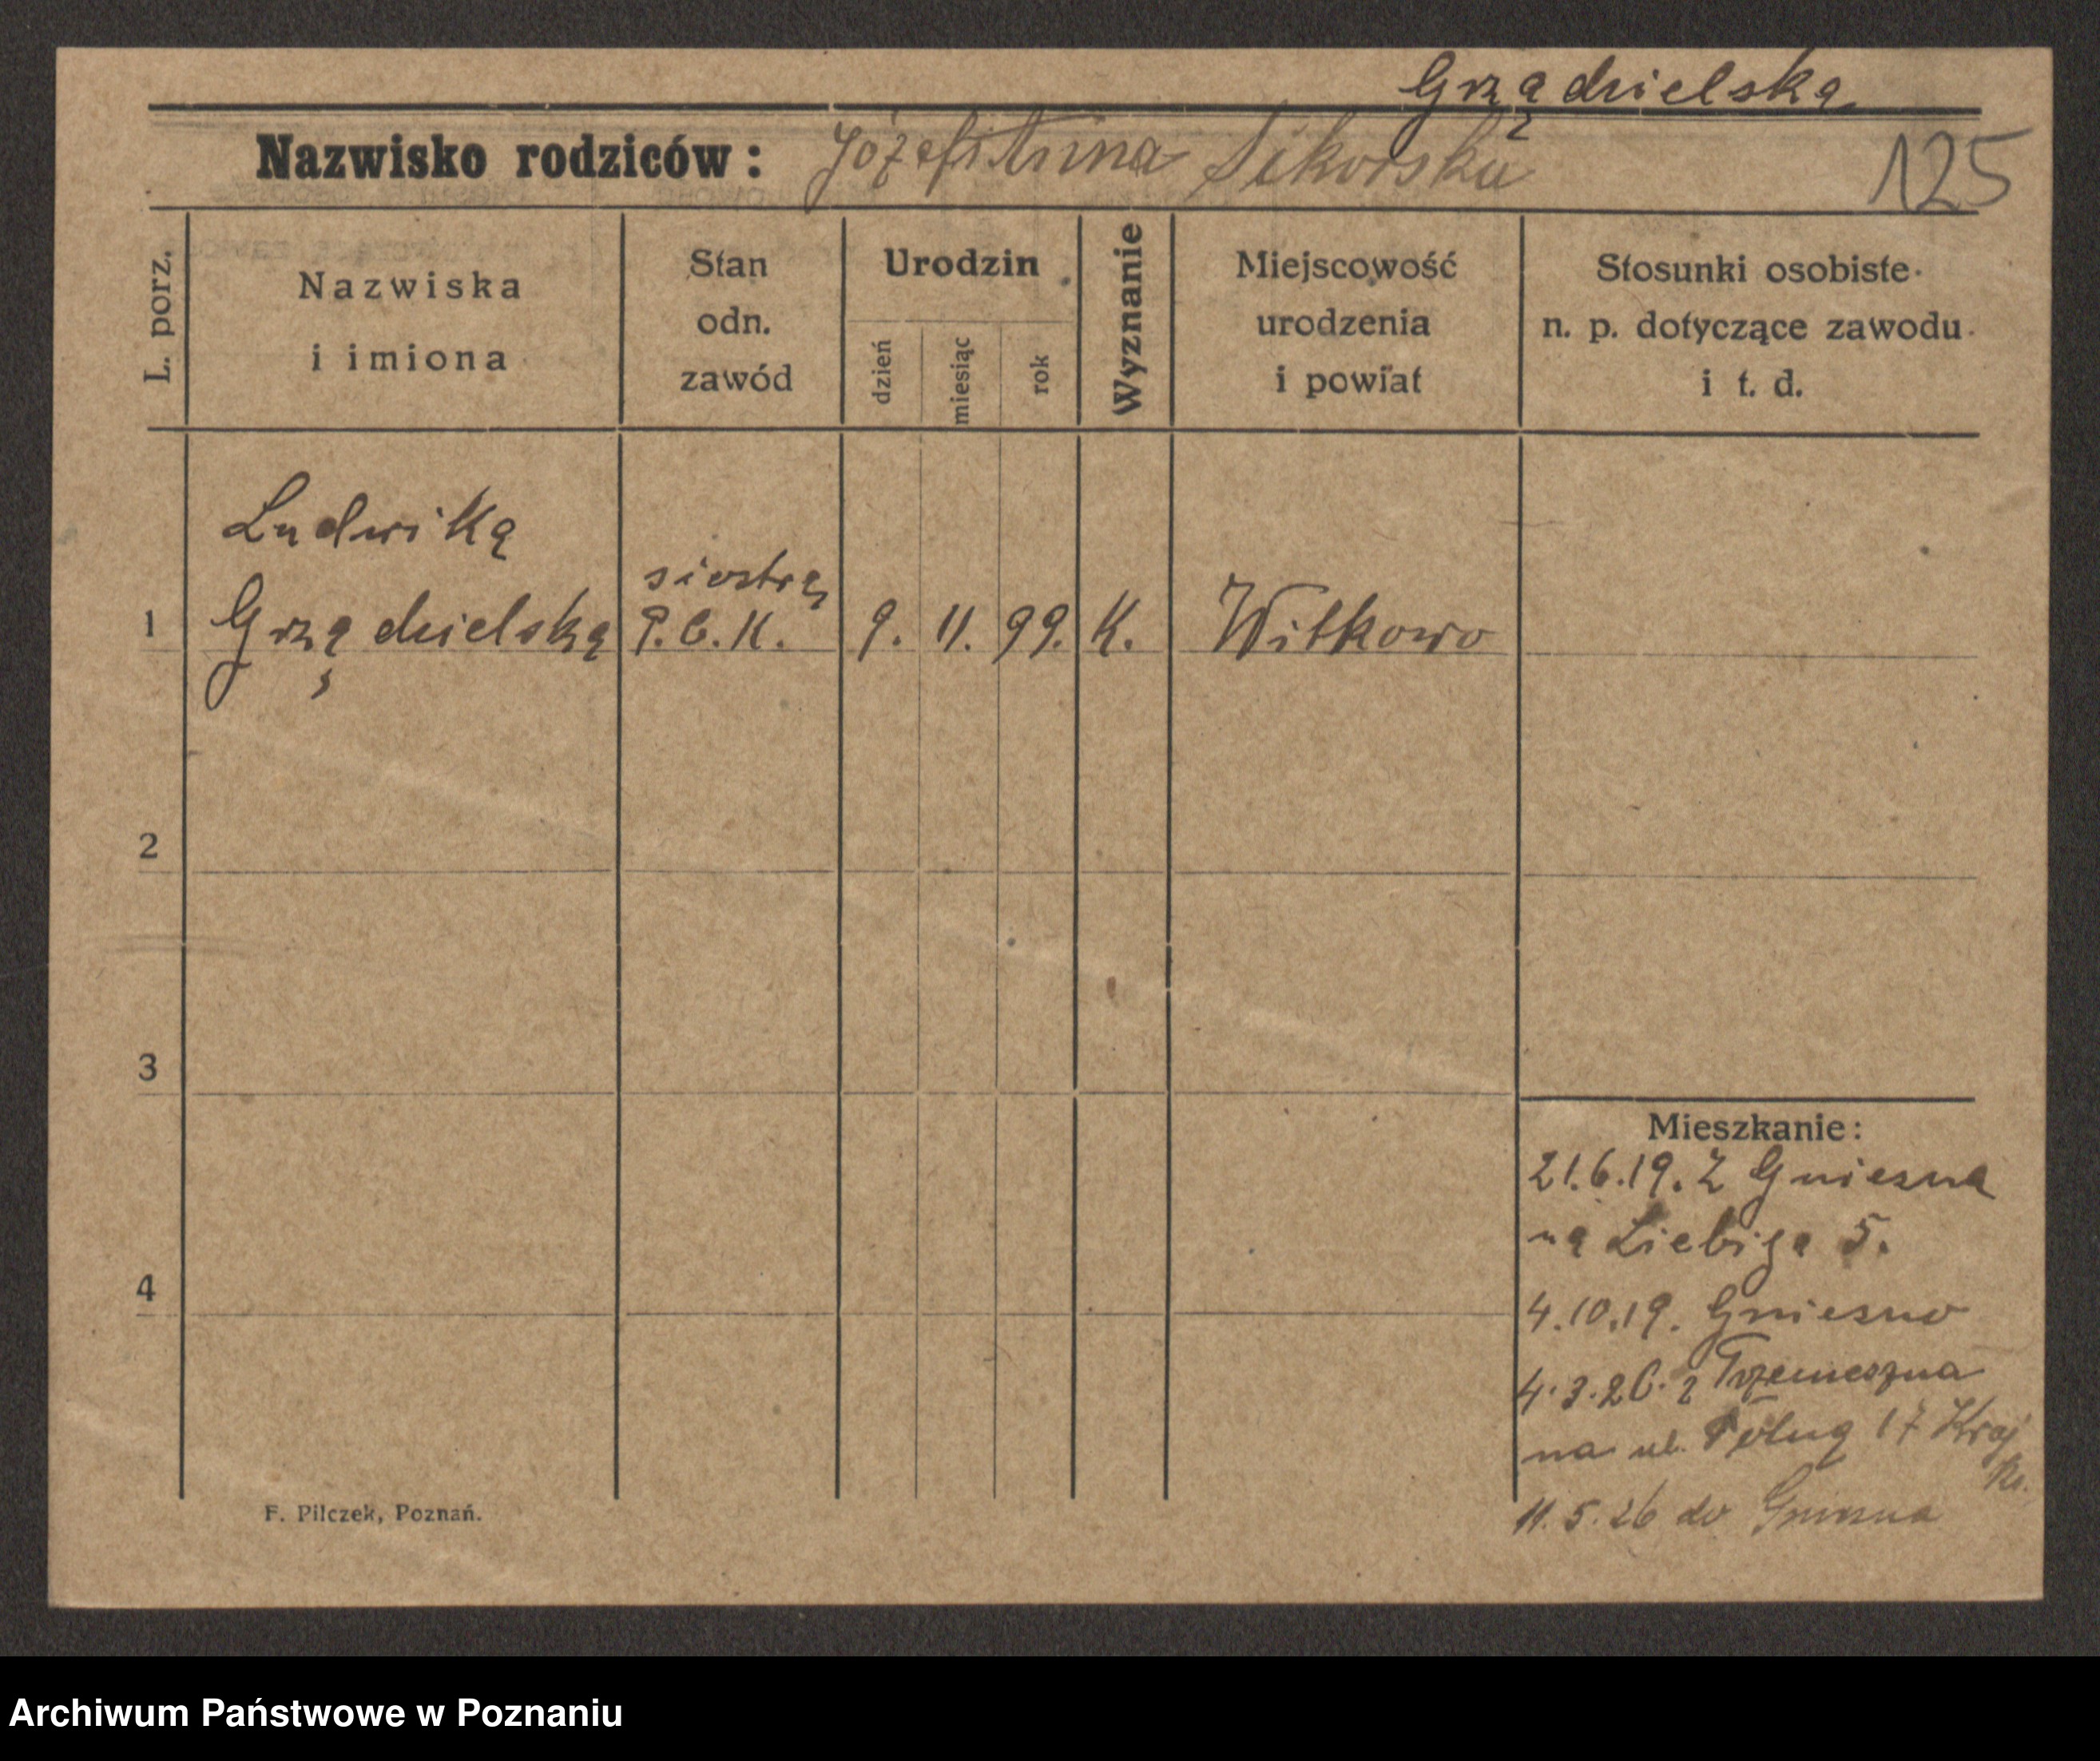 Grządzielska
Nazwisko rodziców: Józef i Anna Sikorska
125
L. porz.
Nazwiska
i imiona
Stan
odn.
zawód
Urodzin
dzień
miesiąc
rok
Wyznanie
Miejscowość
urodzenia
i powiat
Stosunki osobiste
n. p. dotyczące zawodu
i t. d.
Ludwika
siostra
1 Grządzielska P.C.K. 9. 11. 99. K. Witkowo
2
3
4
Mieszkanie:
21.6.19. Z Gniezna
na Liebiga 5.
4.10.19. Gniezno
4.3.26. z Trzemeszna
na ul. 17
11.5.26 do Gniezna
F. Pilczek, Poznań.
Archiwum Państwowe w Poznaniu